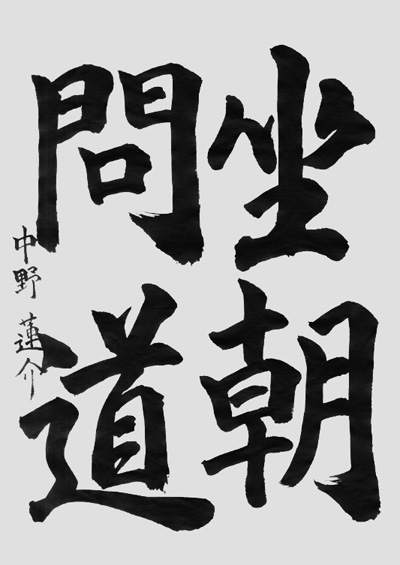 坐朝
問道
中野蓮介